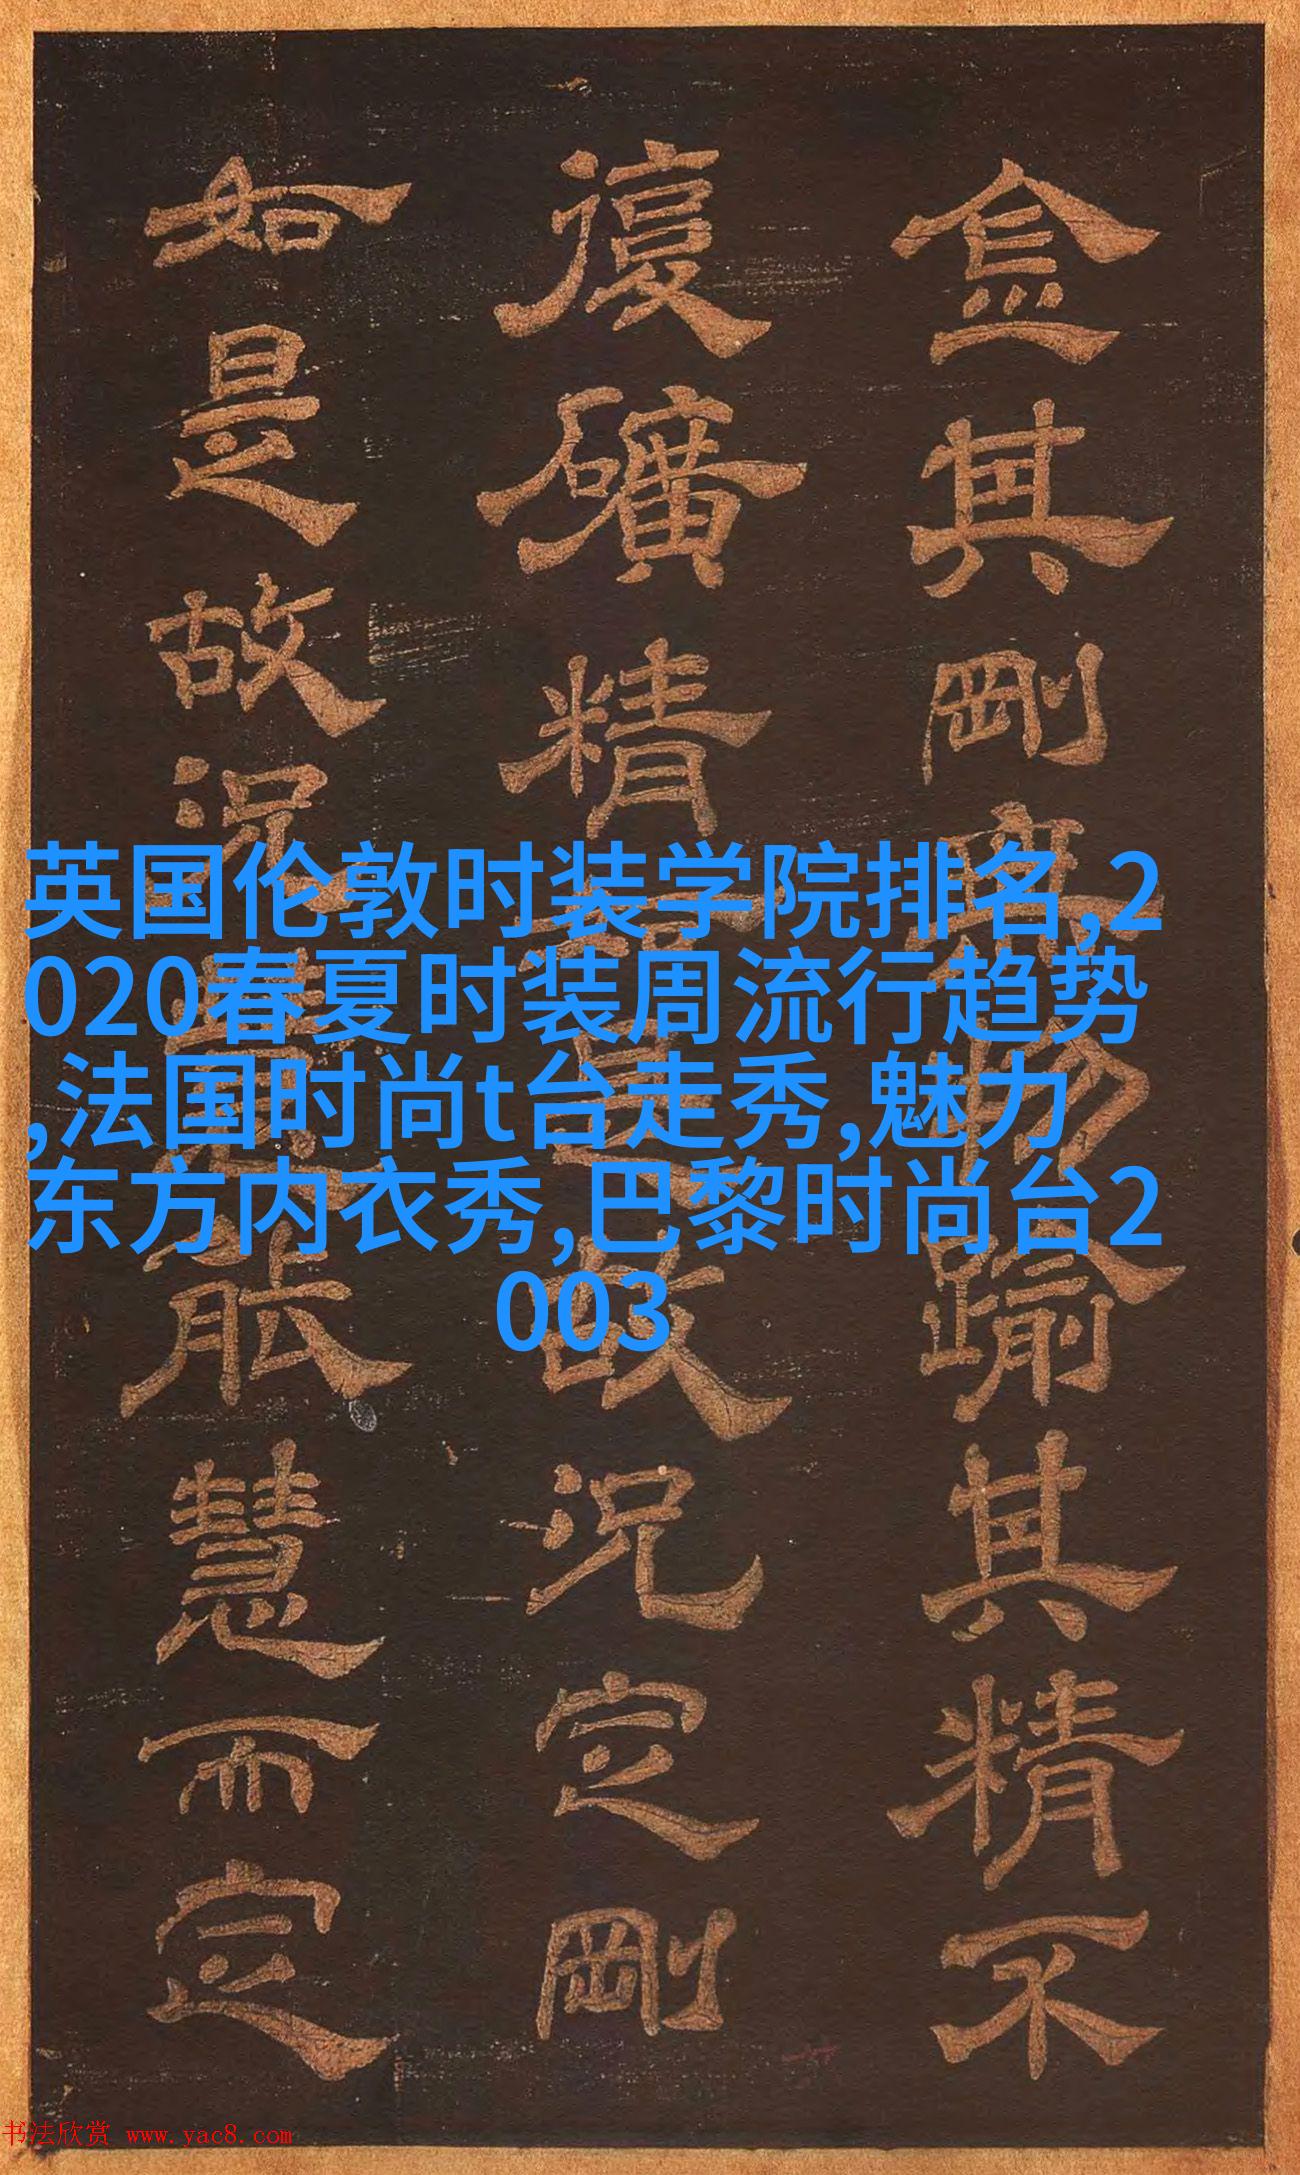 金其剛物踰其精不
復礦精是故況定剛
如是故況能慧而定
英国伦敦时装学院排名,2
020春夏时装周流行趋势
,法国时尚t台走秀,魅力
东方内衣秀,巴黎时尚台2
003
书法欣赏 www.yac8.com